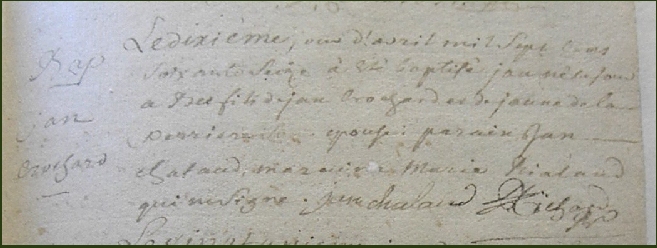 Bap
jan
Crochard
Le dixième jour d'avril mil sept cens
soixante seize à été baptisé jan né le jour
a fils de jan Crochard et de jeanne de la
perriere epouse: parain Jan
chataud, maraine Marie Rialaud
qui ont signe. jean chataud Richard